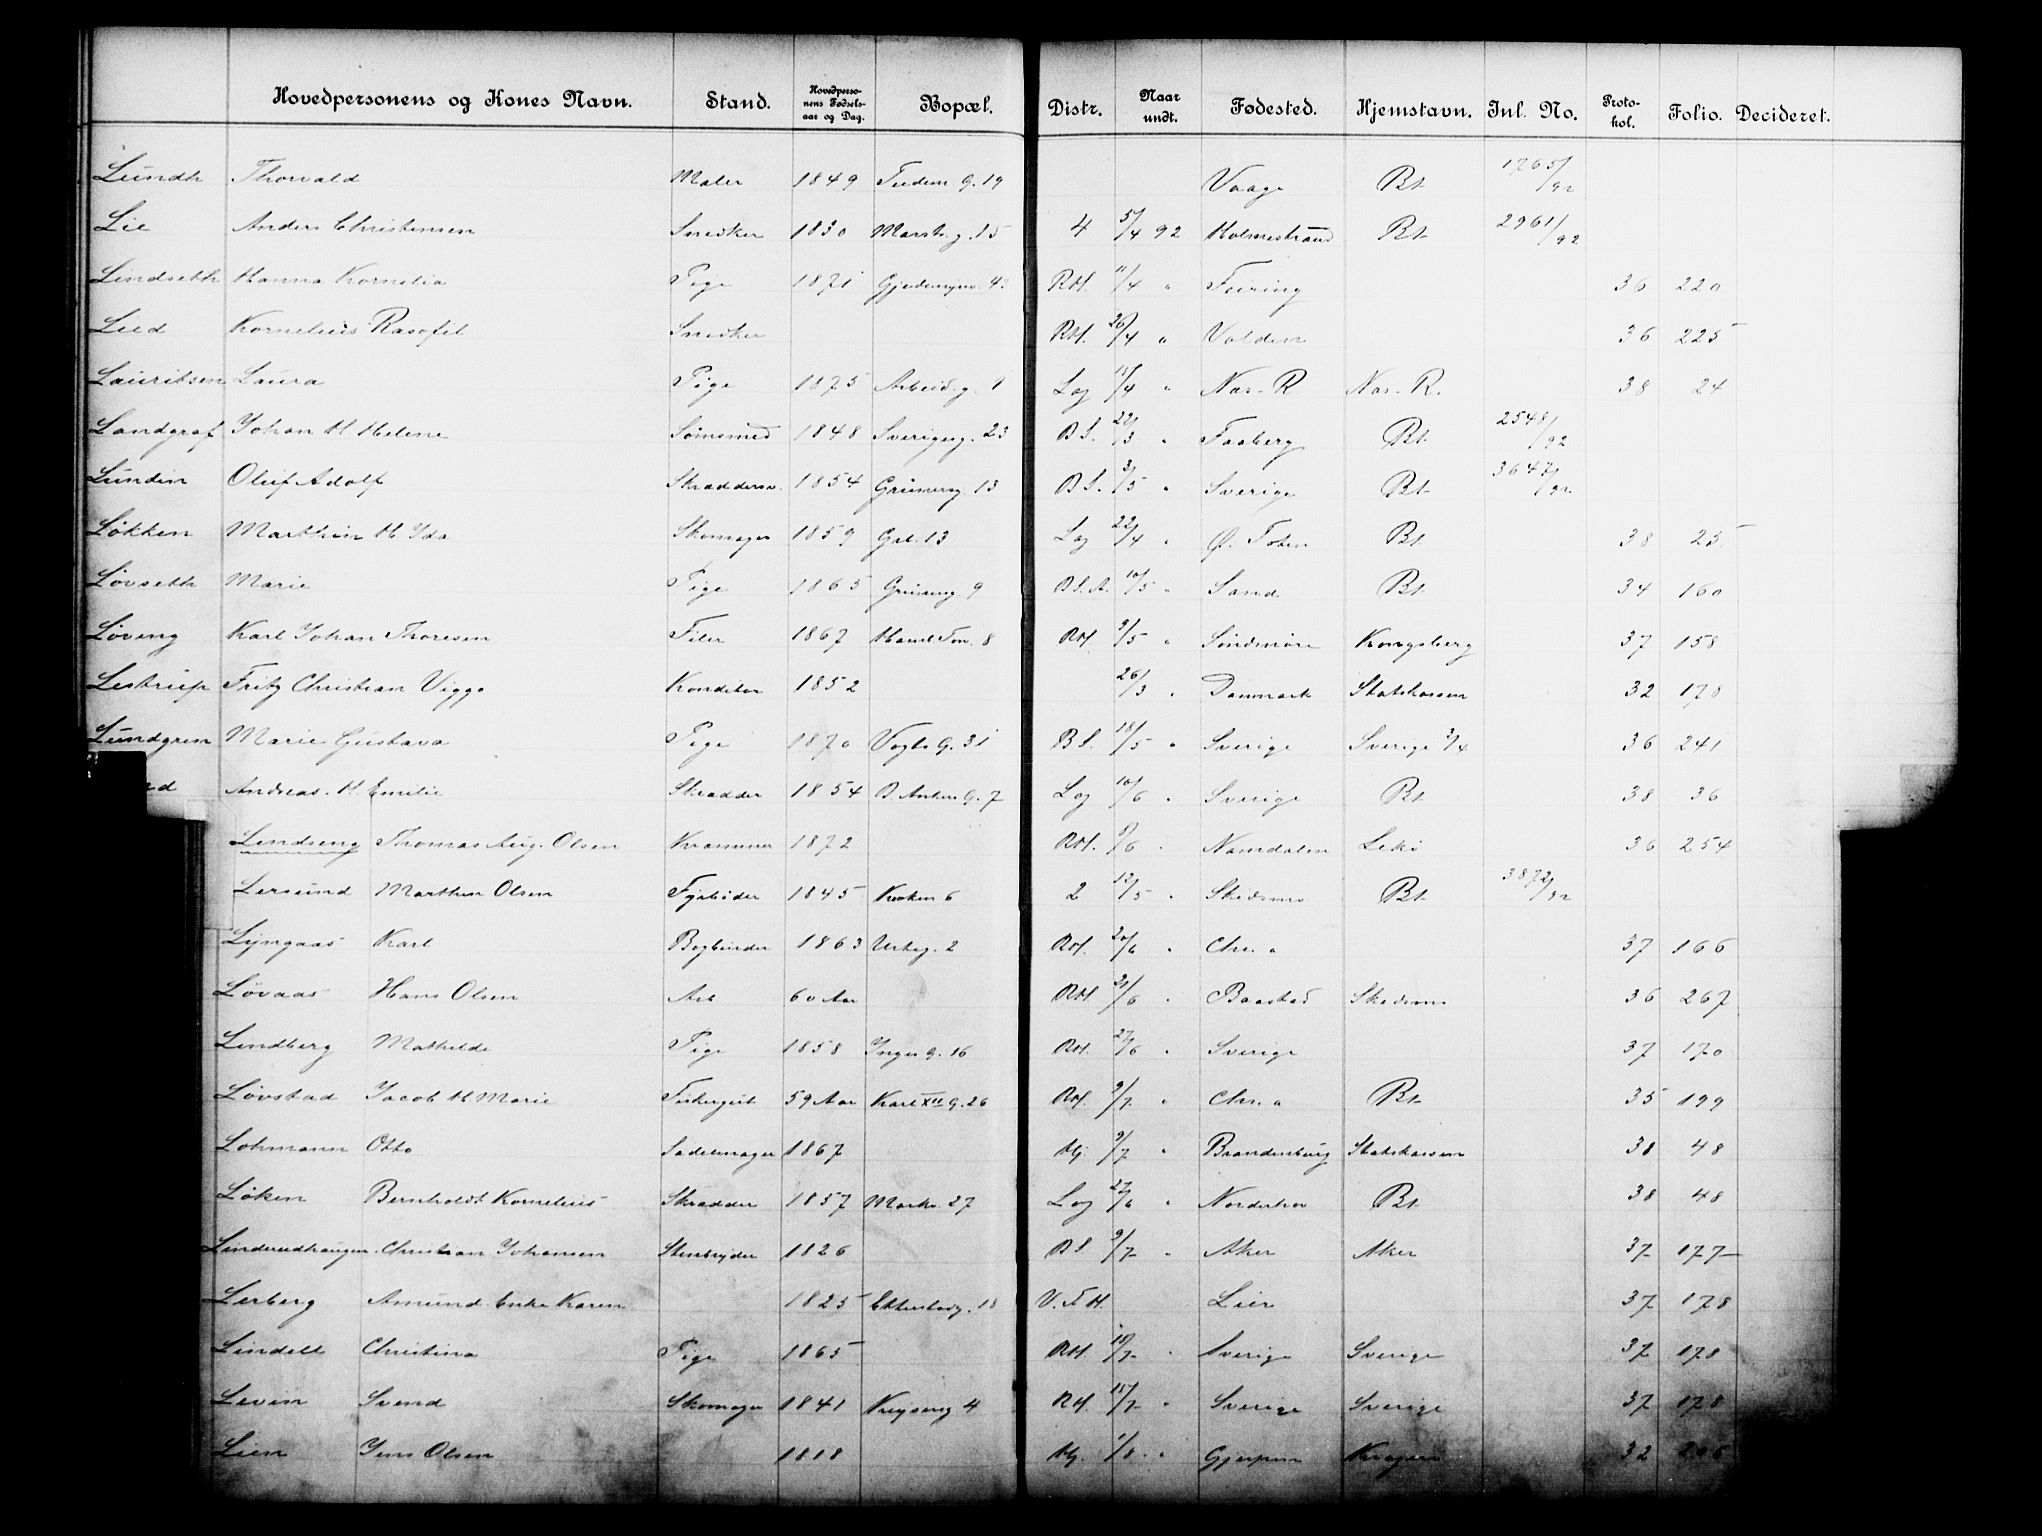 Hovedpersonens og Kones Navn. Stand. Hovedperso-nens Fødsels-aar og Dag. Bopæl. Distr. Naar undt. Fødested. Hjemstavn. Inl. No. Proto-kol. Folio. Decideret.
Lundh Thorvald Maler 1849 G. 19 Vaage Bt. 1765/92
Lie Anders Christensen Snedker 1830 15 4 5/4 92 Holmestrand Bt. 2961/92
Lindseth Hanna Kornelia Pige 1871 RH. 11/4 " Feiring 36 220
Lied Kornelius Rasofil Snedker RH. 26/4 " Volden 36 225
Lauritsen Laura Pige 1875 Arbeid.g. 1 Lag 11/4 " Nas-R Nas-R. 38 24
Landgraf Johan H Helene 1848 Sverigesg. 23 B S. 22/3 " Faaberg Bt. 2548/92
Lundin Oluf Adolf 1854 Grünersg. 13 B S. 3/5 " Sverige Bt. 3647/92
Løkken Marthin H Ida Skomager 1859 13 Lag 22/4 " Ø. Toten Bt. 38 25
Løvseth Marie Pige 1865 9 B S. A. 10/5 " Sand Bt. 34 160
Løveng Karl Johan Thoresen Filer 1867 8 RH. 9/5 " Søndmøre Kongsberg 37 158
Lestrup Fritz Christian Viggo Konditor 1852 26/3 " Danmark Statskassen 32 178
Lundgren Marie Gustava Pige 1870 Vogts G. 31 B S. 18/5 " Sverige Sverige 3/4 36 241
Andreas. H. Emilie Skrædder 1854 B. Ankers G. 7 Lag 10/6 " Sverige Bt. 38 36
Lindseng Thomas Aug. Olsen Kræmmer 1872 RH. /6 " Namdalen Lekø 36 254
Lersund Marthin Olsen Fyrbøder 1845 6 2 12/5 " Skedsmo Bt. 3872/92
Lyngaas Karl Bogbinder 1863 2 RH. 20/6 " Chr.a 37 166
Løvaas Hans Olsen Arb 60 Aar RH 21/6 " Baastad Skedsmo 36 267
Lindberg Mathilde Pige 1858 16 RH. 27/6 " Sverige 37 170
Løvstad Jacob H Marie 59 Aar Karl XII G. 26 RH. 9/7 " Chr.a Bt. 35 199
Lohmann Otto Sadelmager 1867 Hj 9/7 " Brandenburg Statskassen 38 48
Løken Bernholdt Kornelius Skrædder 1857 27 Lag 27/6 " Norderhov Bt. 38 48
Linderudhaugen Christian Johansen Stenbryder 1826 B S. 9/7 " Aker Aker 37 177
Lerberg Amund Enke Karen 1825 18 V. F H. Lier 37 178
Lindell Christina Pige 1865 RH. 10/7 " Sverige Sverige 37 178
Levin Svend Skomager 1841 4 RH. 15/7 " Sverige Sverige 37 178
Lien Jens Olsen 1818 Hj. 1/8 " Gjerpen Kragerø 32